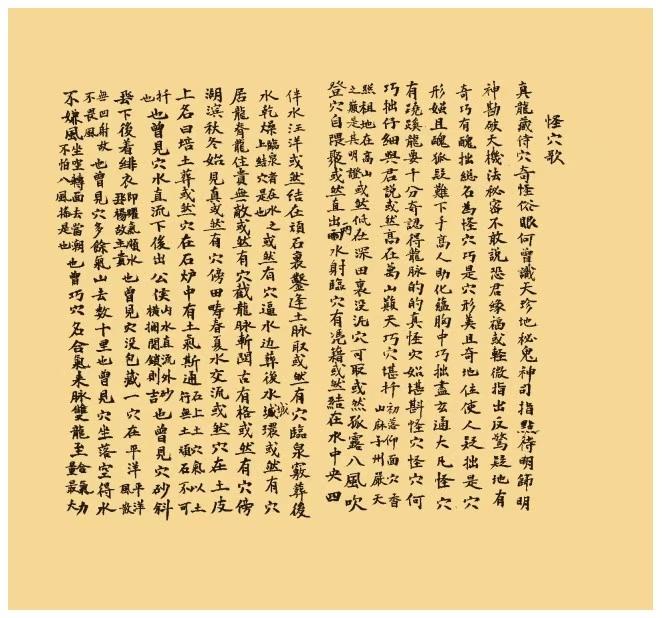 怪穴歌
真龍藏倖穴奇怪俗眼何曾識天珍地秘鬼神司指點待明師明
神勘破天機法秘密不敢說恐君緣福或輕微指出反驚疑地有
奇巧有醜拙總名為怪穴巧是穴形美且奇地位使人疑拙是穴
形嫫且醜狐疑難下手高人助化蘊胸中巧拙盡玄通大凡怪穴
有蹺蹊龍要十分奇認得龍脈的的真怪穴始堪斟怪穴怪穴何
巧拙仔細與君說或然高在萬山巔天巧穴堪扦初落仰面穴杳山麻子州嚴天
照祖地在高山之巔是其明證或然低在深田裏没泥穴可取或然孤露八風吹
登穴自隈聚或然直出兩水射臨穴有憑籍或然結在水中央四
伴水汪洋或然結在頑石裏鑿逢土脈取或然有穴臨泉竅葬後
水乾燥臨泉者在水上結穴是也之或然有穴逼水边葬後水城環或然有穴
居龍脊龍住貴無敵或然有穴截龍脈斬関古有格或然有穴傍
湖濱秋冬始見真或然有穴傍田疇春夏水交流或然穴在土皮
上名曰培土葬或然穴在石炉中有土氣斯通石上土穴氣以土行無土頑石不可
扦也也曾見穴水直流下後出公侯内水直流外砂橫攔関鎖則吉也也曾見穴砂斜
飛下後着緋衣即曜氣順水飛揚故主貴也曾見穴没包藏一穴在平洋平洋風散
無凹射故不畏風也曾見穴多餘氣山去數十里也曾見穴坐落空得水
不嫌風坐空轉面去當朝不怕八風搖是也也曾巧穴名合氣來脈雙龍至合氣力量最大